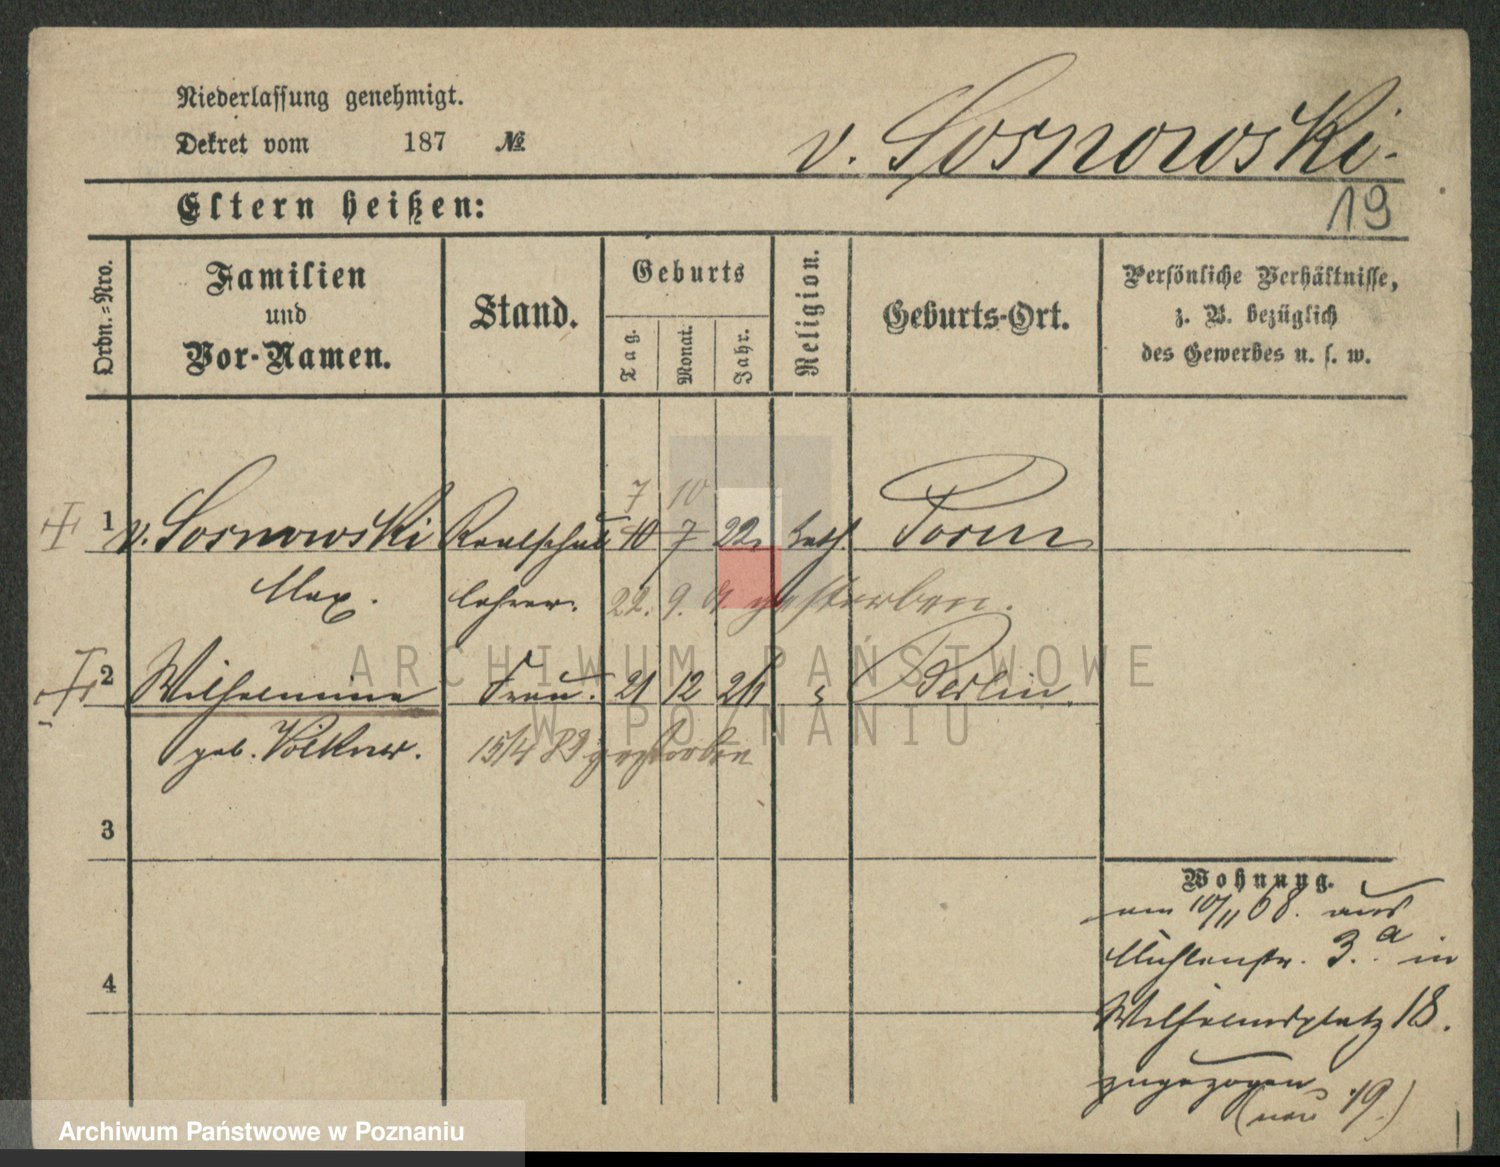 Niederlassung genehmigt.
Dekret vom 187 №
v. Sosnowski.
Eltern heißen:
19
Ordn.=Nro.
Familien
und
Vor-Namen.
Stand.
Geburts
Tag.
Monat.
Jahr.
Religion.
Geburts-Ort.
Persönliche Verhältnisse,
z. B. bezüglich
des Gewerbes u. s. w.
7 10
1 v. Sosnowski Realschul 10 7 22, kath. Posen
Max. lehrer. 22. 9. gestorben.
2 Wilhelmine Frau. 21 12 Berlin.
geb. Völkner. 15/4 89 gestorben
3
4
Wohnung.
am 10/11 68. aus
Mühlenstr. 3.a in
Wilhelmsplatz 18.
zugezogen
(neu 19.)
ARCHIWUM PAŃSTWOWE
W POZNANIU
Archiwum Państwowe w Poznaniu